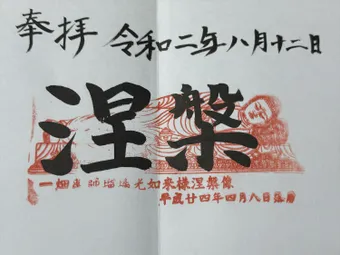 奉拝 令和二年八月十二日
涅槃
一畑薬師瑠璃光如来様涅槃像
平成廿四年四月八日落慶